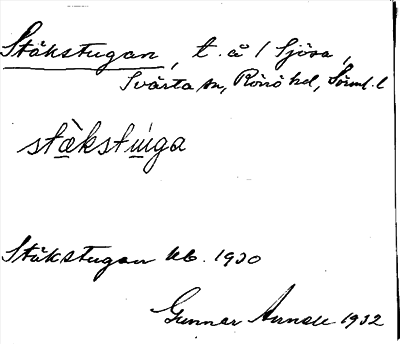 Stäkstugan, t. å / Sjösa,
Svärta sn, Rönö hd, Sörml. l
stæ̀kstúga
Stäkstugan kb. 1930
Gunnar 1932